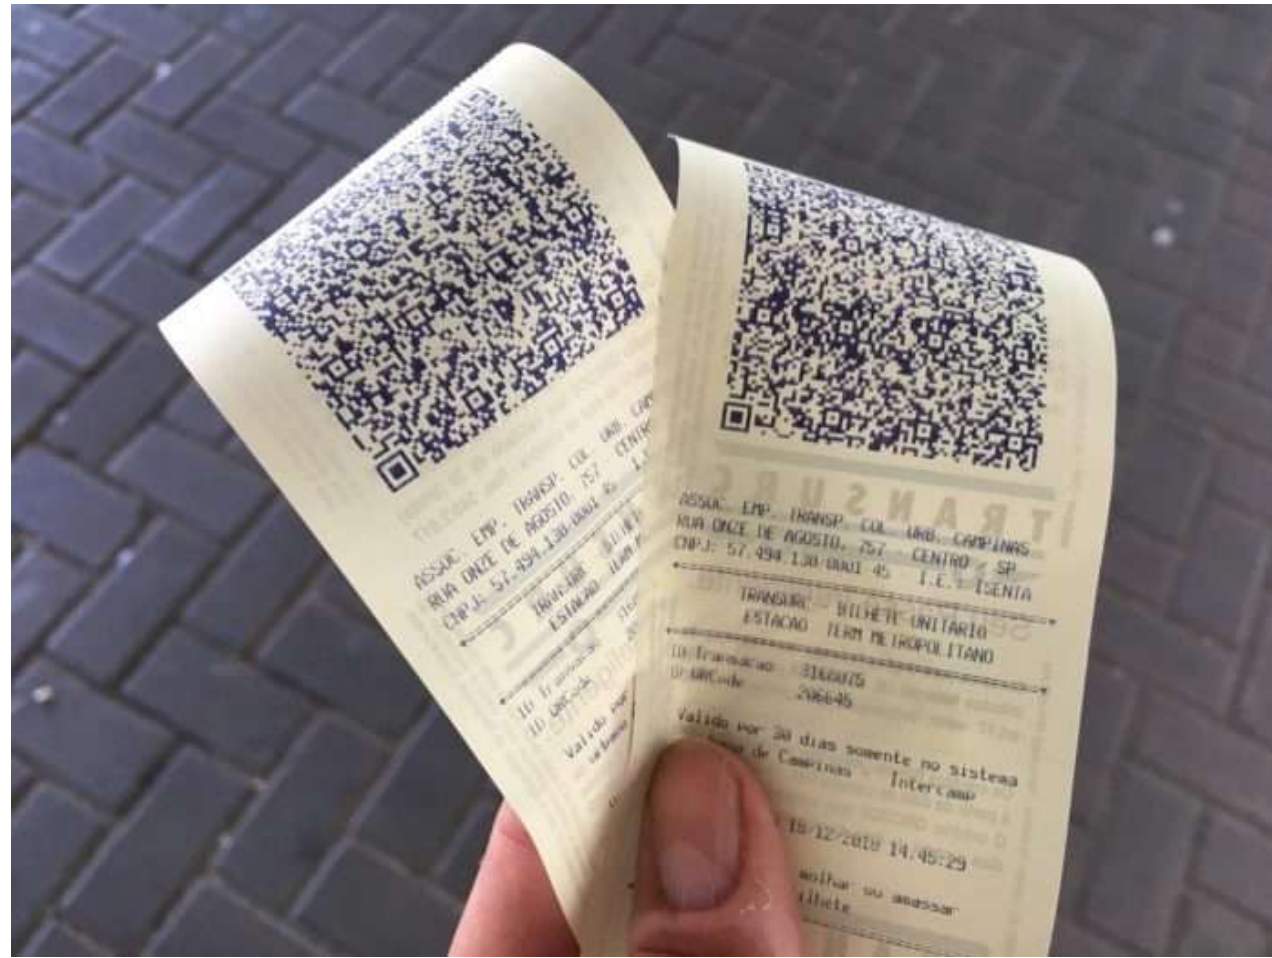 ASSOC. EMP. TRANSP. COL. URB. CAM
RUA ONZE DE AGOSTO, 757 CENTR
CNPJ: 57.494.130.0001 45 I.
TRANSURC BILHET
ESTACAO TERM M
ID Transacao
ID QRCode
Valido por
urbano
TRANSURC
ASSOC. EMP. TRANSP. COL. URB. CAMPINAS
RUA ONZE DE AGOSTO, 757 - CENTRO - SP
CNPJ: 57.494.130/0001 45 I.E.: ISENTA
TRANSURC - BILHETE UNITARIO
ESTACAO TERM METROPOLITANO
ID Transacao
ID QRCode 206645
Valido por 30 dias somente no sistema
de Campinas Intercamp
14.45:29
molhar ou amassar
ilhete